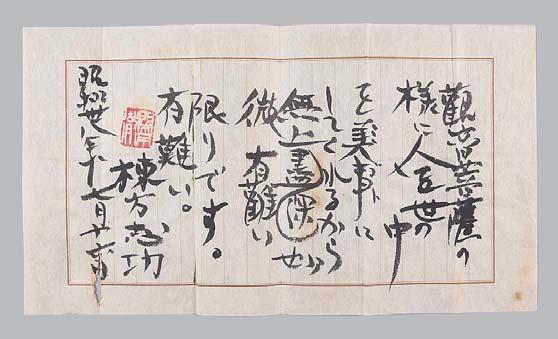 觀世音菩薩の
様に人をも世の中
を美事に
してくれるから
無上甚深妙
微有難い
限りです。
有難い。
棟方志功
昭和卅八年七月廿六日